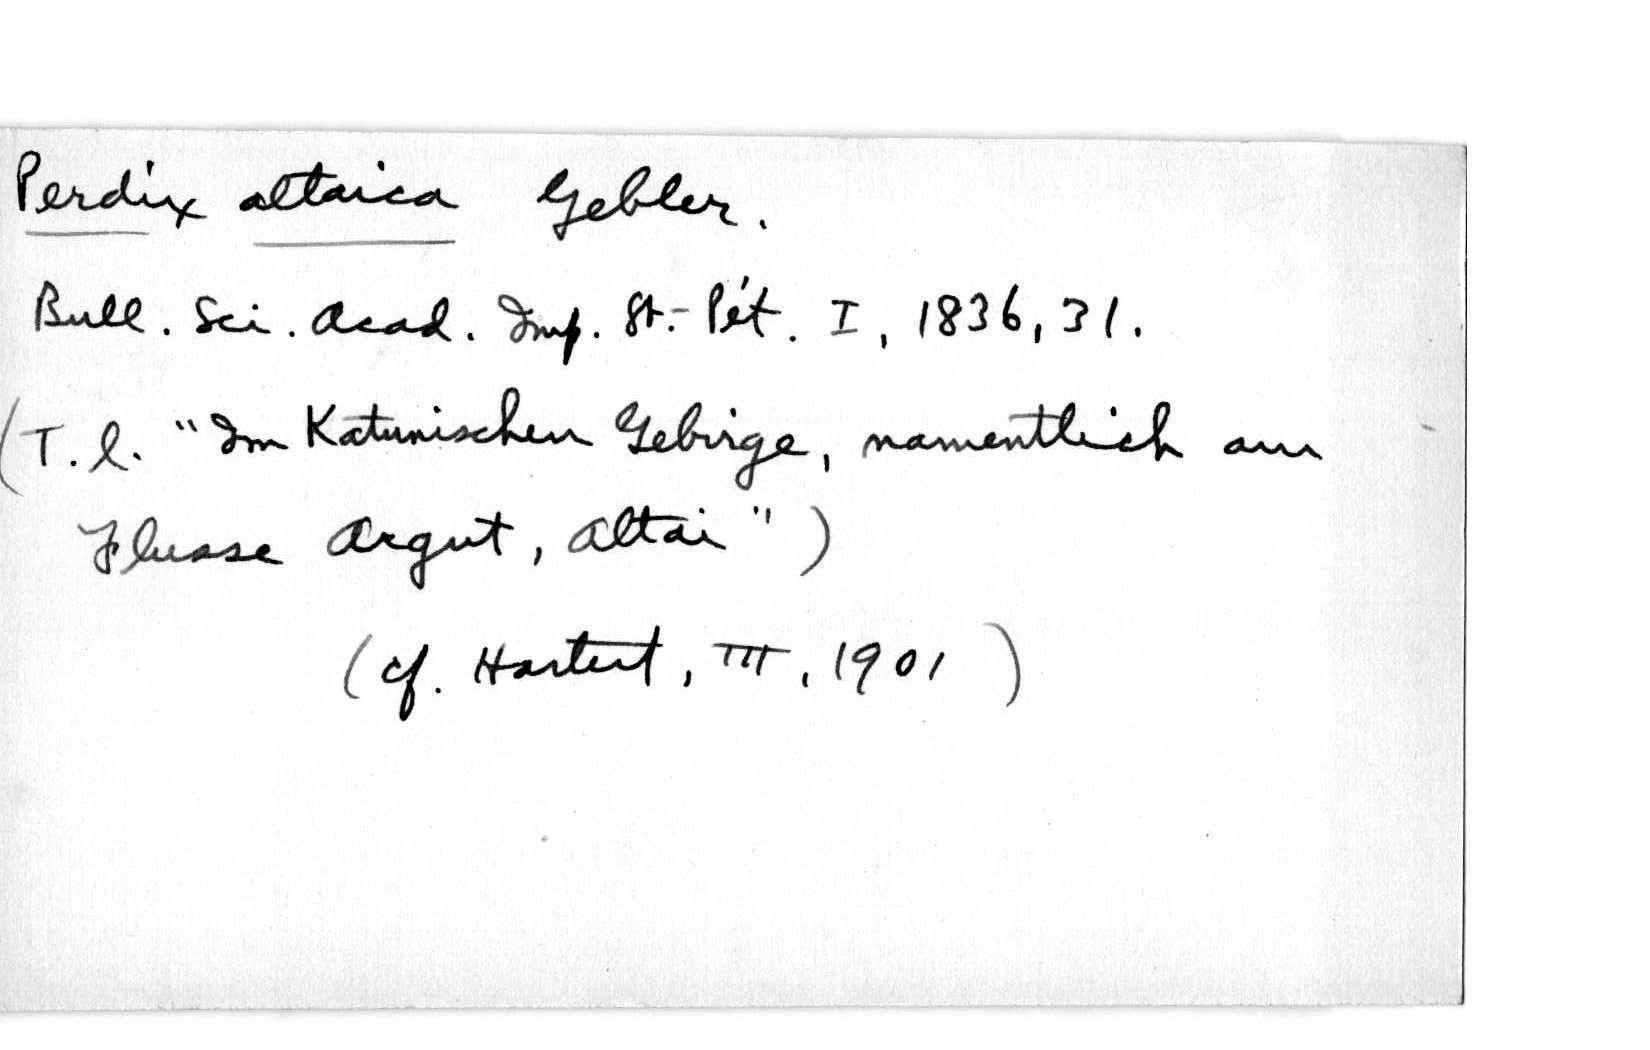 Perdix altaica Gebler.
Bull. Sci. Acad. Imp. St.-Pét. I, 1836, 31.
(T. l. "Im Katunischen Gebirge, namentlich am
Flusse Argut, Altai")
(cf. Hartert, III, 1901)